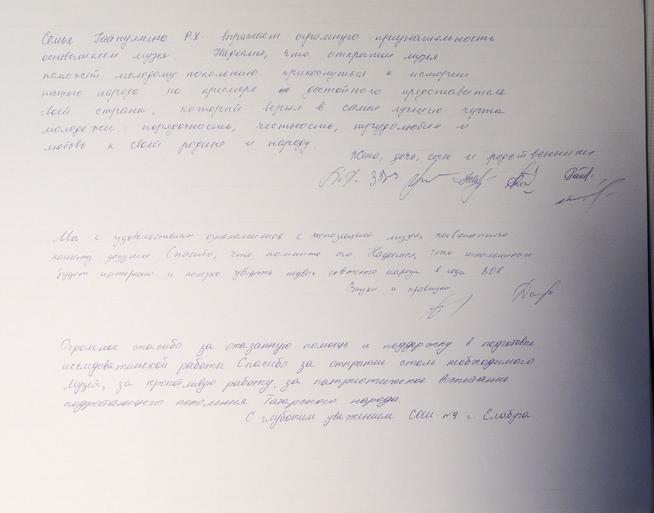 Семья Гайнуллина Р.Х. выражает огромную признательность
основателям музея. Надеемся, что открытие музея
поможет молодому поколению прикоснуться к истории
нашего народа на примере достойного представителя
своей страны, который верил в самые лучшие чувства
молодежи: порядочность, честность, трудолюбие и
любовь к своей родине и народу.
Жена, дочь, сын и родственники
Мы с удовольствием ознакомились с экспозицией музея, посвященного
нашему дедушке. Спасибо, что помните его. Надеемся, что
будет интересно и полезно увидеть подвиг советского народа в годы ВОВ
Внуки и правнуки.
Огромное спасибо за оказанную помощь и поддержку в подготовке
исследовательской работы. Спасибо за открытие столь необходимого
музея, за кропотливую работу, за патриотическое воспитание
подрастающего поколения Татарского народа.
С глубоким уважением СОШ №9 г. Елабуга.